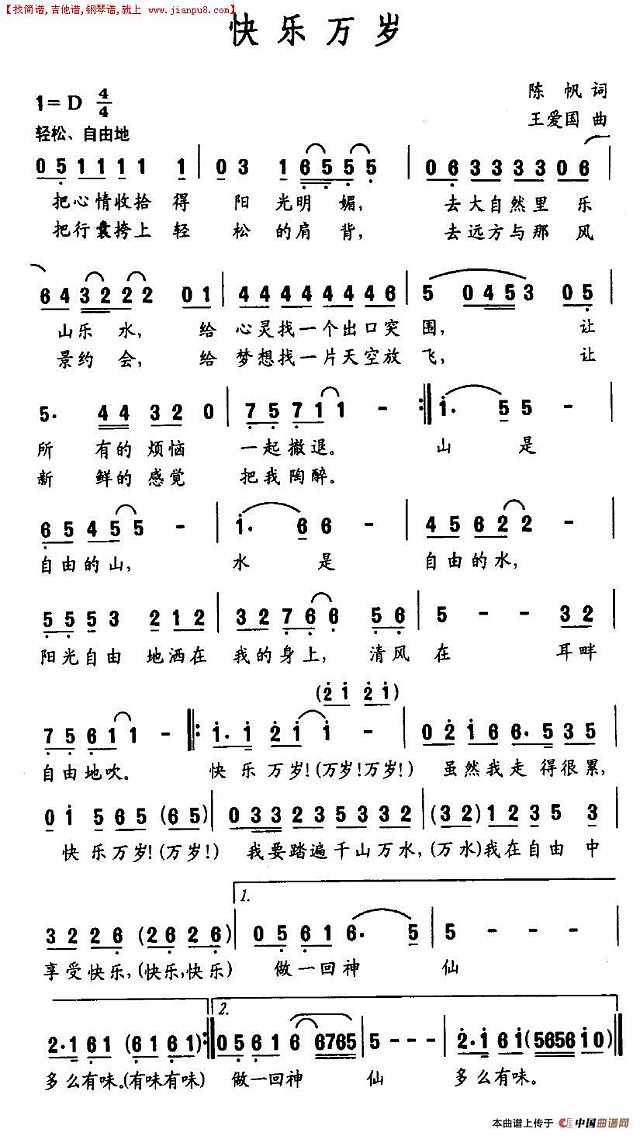 【找简谱,吉他谱,钢琴谱,就上 www.jianpu8.com】
快乐万岁
1=D 4/4
陈 帆 词
轻松、自由地
王爱国 曲
0 5 1 1 1 1 1 | 0 3 1 6 5 5 5 | 0 6 3 3 3 3 0 6
把心情收拾 得 阳 光明 媚, 去大自然里 乐
把行囊挎上 轻 松 的肩 背, 去远方与那 风
6 4 3 2 2 2 0 1 | 4 4 4 4 4 4 4 4 6 | 5 0 4 5 3 0 5
山乐 水, 给 心灵找一个出口突 围, 让
景约 会, 给 梦想找一片天空放 飞, 让
5· 4 4 3 2 0 | 7 5 7 1 1 - :| 1· 5 5
所 有的 烦恼 一起撤退。 山 是
新 鲜的 感觉 把我陶醉。
6 5 4 5 5 - | 1· 6 6 | 4 5 6 2 2 -
自由的山, 水 是 自由的水,
5 5 5 3 2 1 2 | 3 2 2 7 6 6 5 | 5 - - 3 2
阳光自由 地洒在 我的身上, 清风 在 耳畔
(2 1 2 1)
7 5 6 1 1 - |: 1· 1 2 1 1 | 0 2 1 6 6· 5 3 5
自由地吹。 快 乐 万岁!(万岁!万岁!) 虽然我走 得很累,
0 1 5 6 5 (6 5) | 0 3 3 2 3 5 3 3 2 | (3 2) 1 2 3 5 3
快乐万岁!(万岁!) 我要踏遍千山万水, (万水)我在自由 中
1.
3 2 2 6 (2 6 2 6) | 0 5 6 1 6· 5 | 5 - - -
享受快乐,(快乐,快乐) 做一回神 仙
2.
2·1 6 1 (6 1 6 1) :| 0 5 6 1 6 6765 | 5 - - - | 2·1 6 1 (5656 1 0)
多么有味。(有味有味) 做一回神 仙 多么有味。
本曲谱上传于 中国曲谱网